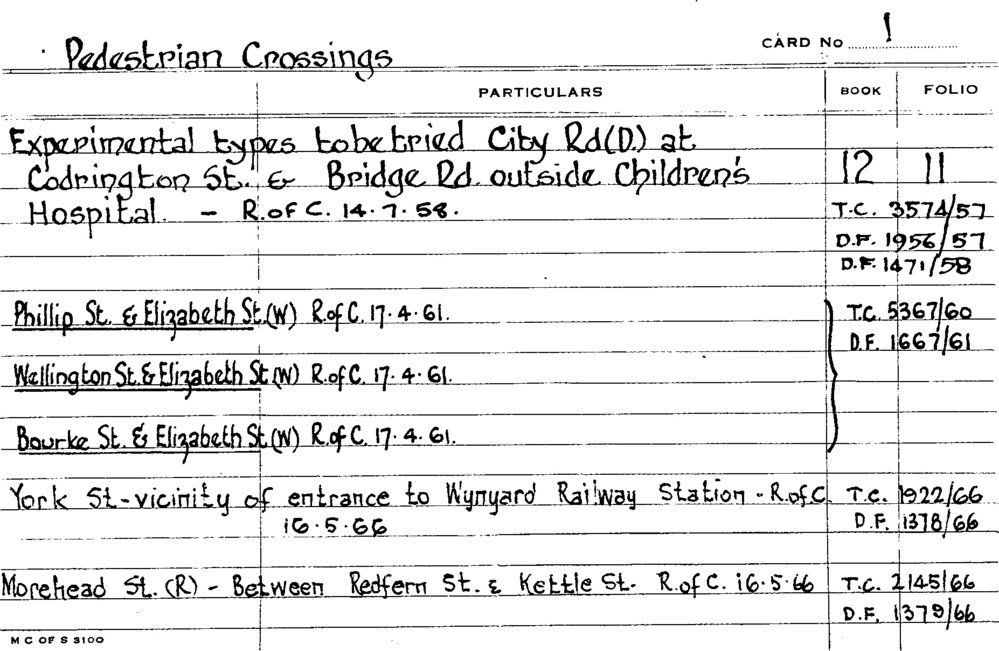 Pedestrian Crossings CARD No 1
PARTICULARS BOOK FOLIO
Experimental types to be tried City Rd (D.) at
Codrington St. & Bridge Rd. outside Children's 12 11
Hospital. - R. of C. 14.7.58. T.C. 3574/57
D.F. 1956/57
D.F. 1471/58
Phillip St. & Elizabeth St. (W) R. of C. 17.4.61. T.C. 5367/60
D.F. 1667/61
Wellington St. & Elizabeth St (W) R. of C. 17.4.61.
Bourke St. & Elizabeth St (W) R. of C. 17.4.61.
York St - vicinity of entrance to Wynyard Railway Station - R. of C. T.C. 1922/66
16.5.66 D.F. 1378/66
Morehead St. (R) - Between Redfern St. & Kettle St. R. of C. 16.5.66 T.C. 2145/66
D.F. 1379/66
M C OF S 3100